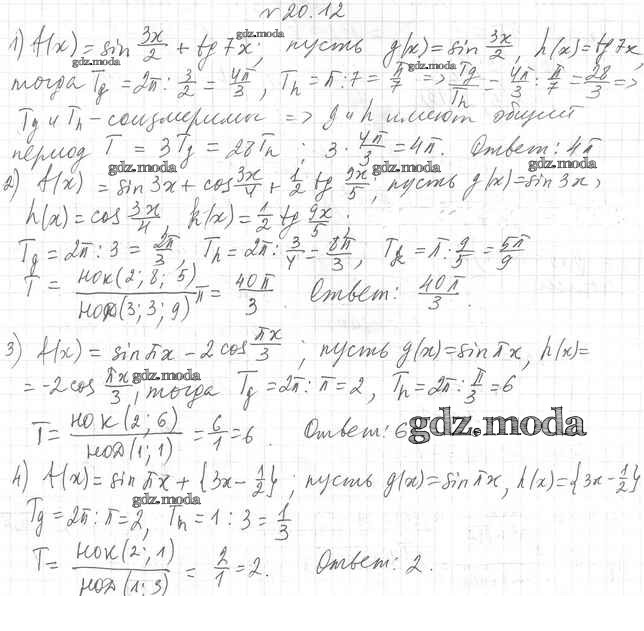 № 20.12
1) f(x) = sin 3x/2 + tg 7x; пусть g(x) = sin 3x/2, h(x) = tg 7x,
gdz.moda gdz.moda
тогда Tg = 2π : 3/2 = 4π/3, Th = π : 7 = π/7 => Tg/Th = 4π/3 : π/7 = 28/3 =>
gdz.moda
Tg и Th - соизмеримы => g и h имеют общий
период T = 3Tg = 28Th; 3 · 4π/3 = 4π. Ответ: 4π
gdz.moda gdz.moda gdz.moda
2) f(x) = sin 3x + cos 3x/4 + 1/2 tg 9x/5; пусть g(x) = sin 3x,
h(x) = cos 3x/4 k(x) = 1/2 tg 9x/5.
Tg = 2π : 3 = 2π/3 Th = 2π : 3/4 = 8π/3, Tk = π : 9/5 = 5π/9
T = НОК(2; 8; 5)/НОД(3; 3; 9) π = 40π/3. Ответ: 40π/3.
3) f(x) = sin πx - 2 cos πx/3; пусть g(x) = sin πx, h(x) =
= -2 cos πx/3, тогда Tg = 2π : π = 2, Th = 2π : π/3 = 6
gdz.moda
T = НОК(2; 6)/НОД(1; 1) = 6/1 = 6. Ответ: 6
gdz.moda
4) f(x) = sin πx + {3x - 1/2}; пусть g(x) = sin πx, h(x) = {3x - 1/2}
gdz.moda
Tg = 2π : π = 2, Th = 1 : 3 = 1/3
T = НОК(2; 1)/НОД(1; 3) = 2/1 = 2. Ответ: 2.